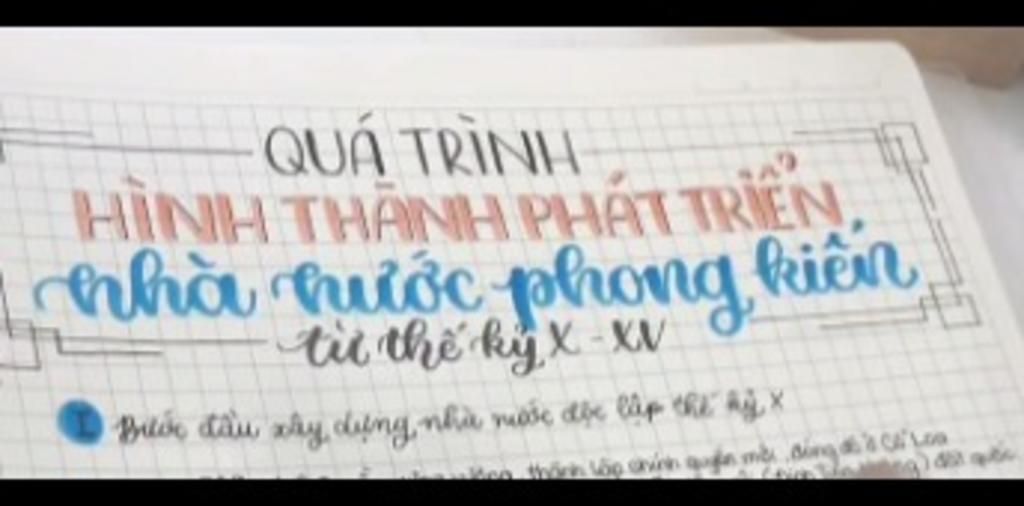 QUÁ TRÌNH
HÌNH THÀNH PHÁT TRIỂN
nhà nước phong kiến
từ thế kỷ X - XV
I Bước đầu xây dựng nhà nước độc lập thế kỷ X
thành lập chính quyền mới, đóng đô ở Cổ Loa
) đất quốc